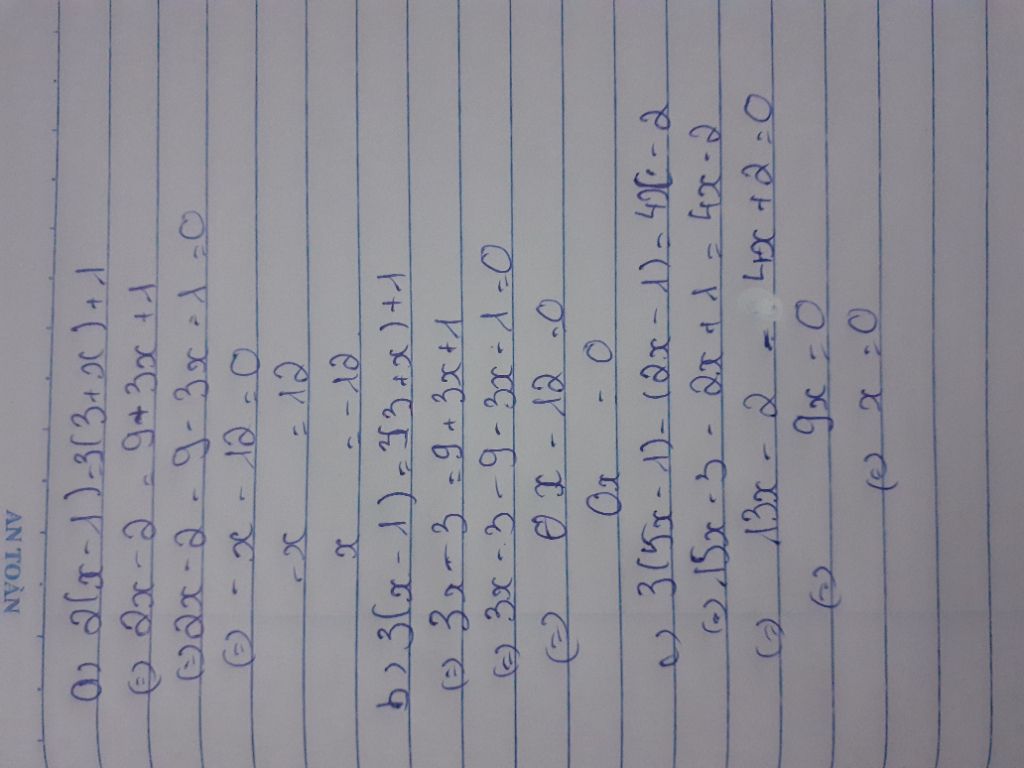 AN TOÀN
a) 2(x - 1) = 3(3 + x) + 1
(=) 2x - 2 = 9 + 3x + 1
(=) 2x - 2 - 9 - 3x - 1 = 0
(=) - x - 12 = 0
- x = 12
x = -12
b) 3(x - 1) = 3(3 + x) + 1
(=) 3x - 3 = 9 + 3x + 1
(=) 3x - 3 - 9 - 3x - 1 = 0
(=) 0x - 12 = 0
0x = 0
c) 3(5x - 1) - (2x - 1) = 4x - 2
(=) 15x - 3 - 2x + 1 = 4x - 2
(=) 13x - 2 - 4x + 2 = 0
(=) 9x = 0
(=) x = 0